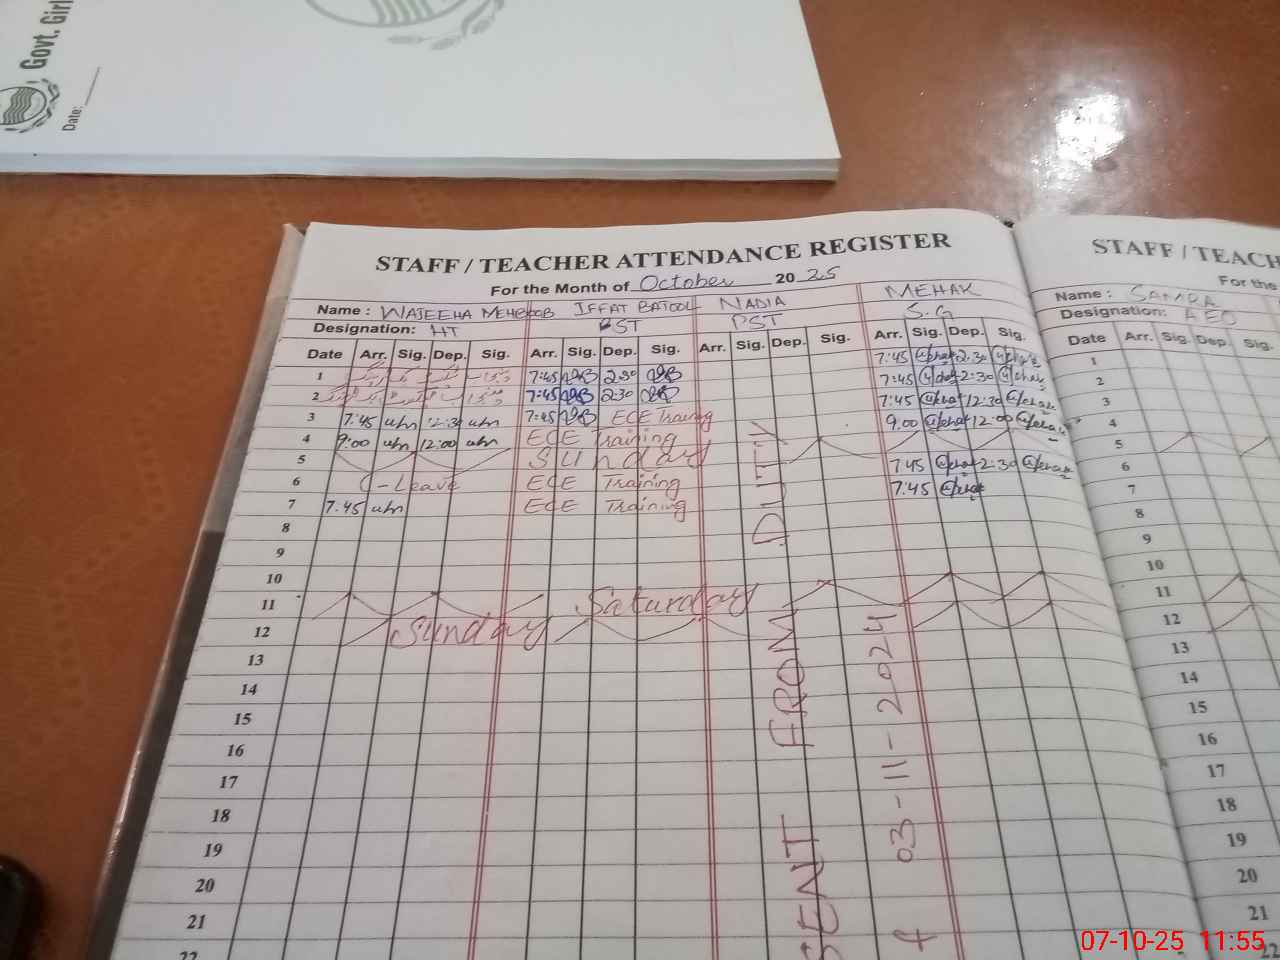 Govt. Girl
Date:
STAFF / TEACHER ATTENDANCE REGISTER
For the Month of October 2025
Name : WAJEEHA MEHBOOB IFFAT BATOOL NADIA MEHAK
Designation: HT PST PST S.G
Date Arr. Sig. Dep. Sig. Arr. Sig. Dep. Sig. Arr. Sig. Dep. Sig. Arr. Sig. Dep. Sig.
1 7:45 2:30 7:45 2:30
2 7:45 2:30 7:45 2:30
3 7:45 12:30 7:45 ECE Training 7:45 12:30
4 9:00 12:00 ECE Training 9:00 12:00
5 Sunday
6 C-Leave ECE Training 7:45 2:30
7 7:45 ECE Training 7:45
8
9
10
11 Saturday
12 Sunday
13
14
15
16
17
18
19
20
21
22
SENT FROM DUTY
03-11-2024
STAFF / TEACH
For the
Name : SAMRA
Designation: AEO
Date Arr. Sig. Dep. Sig.
1
2
3
4
5
6
7
8
9
10
11
12
13
14
15
16
17
18
19
20
21
22
07-10-25 11:55